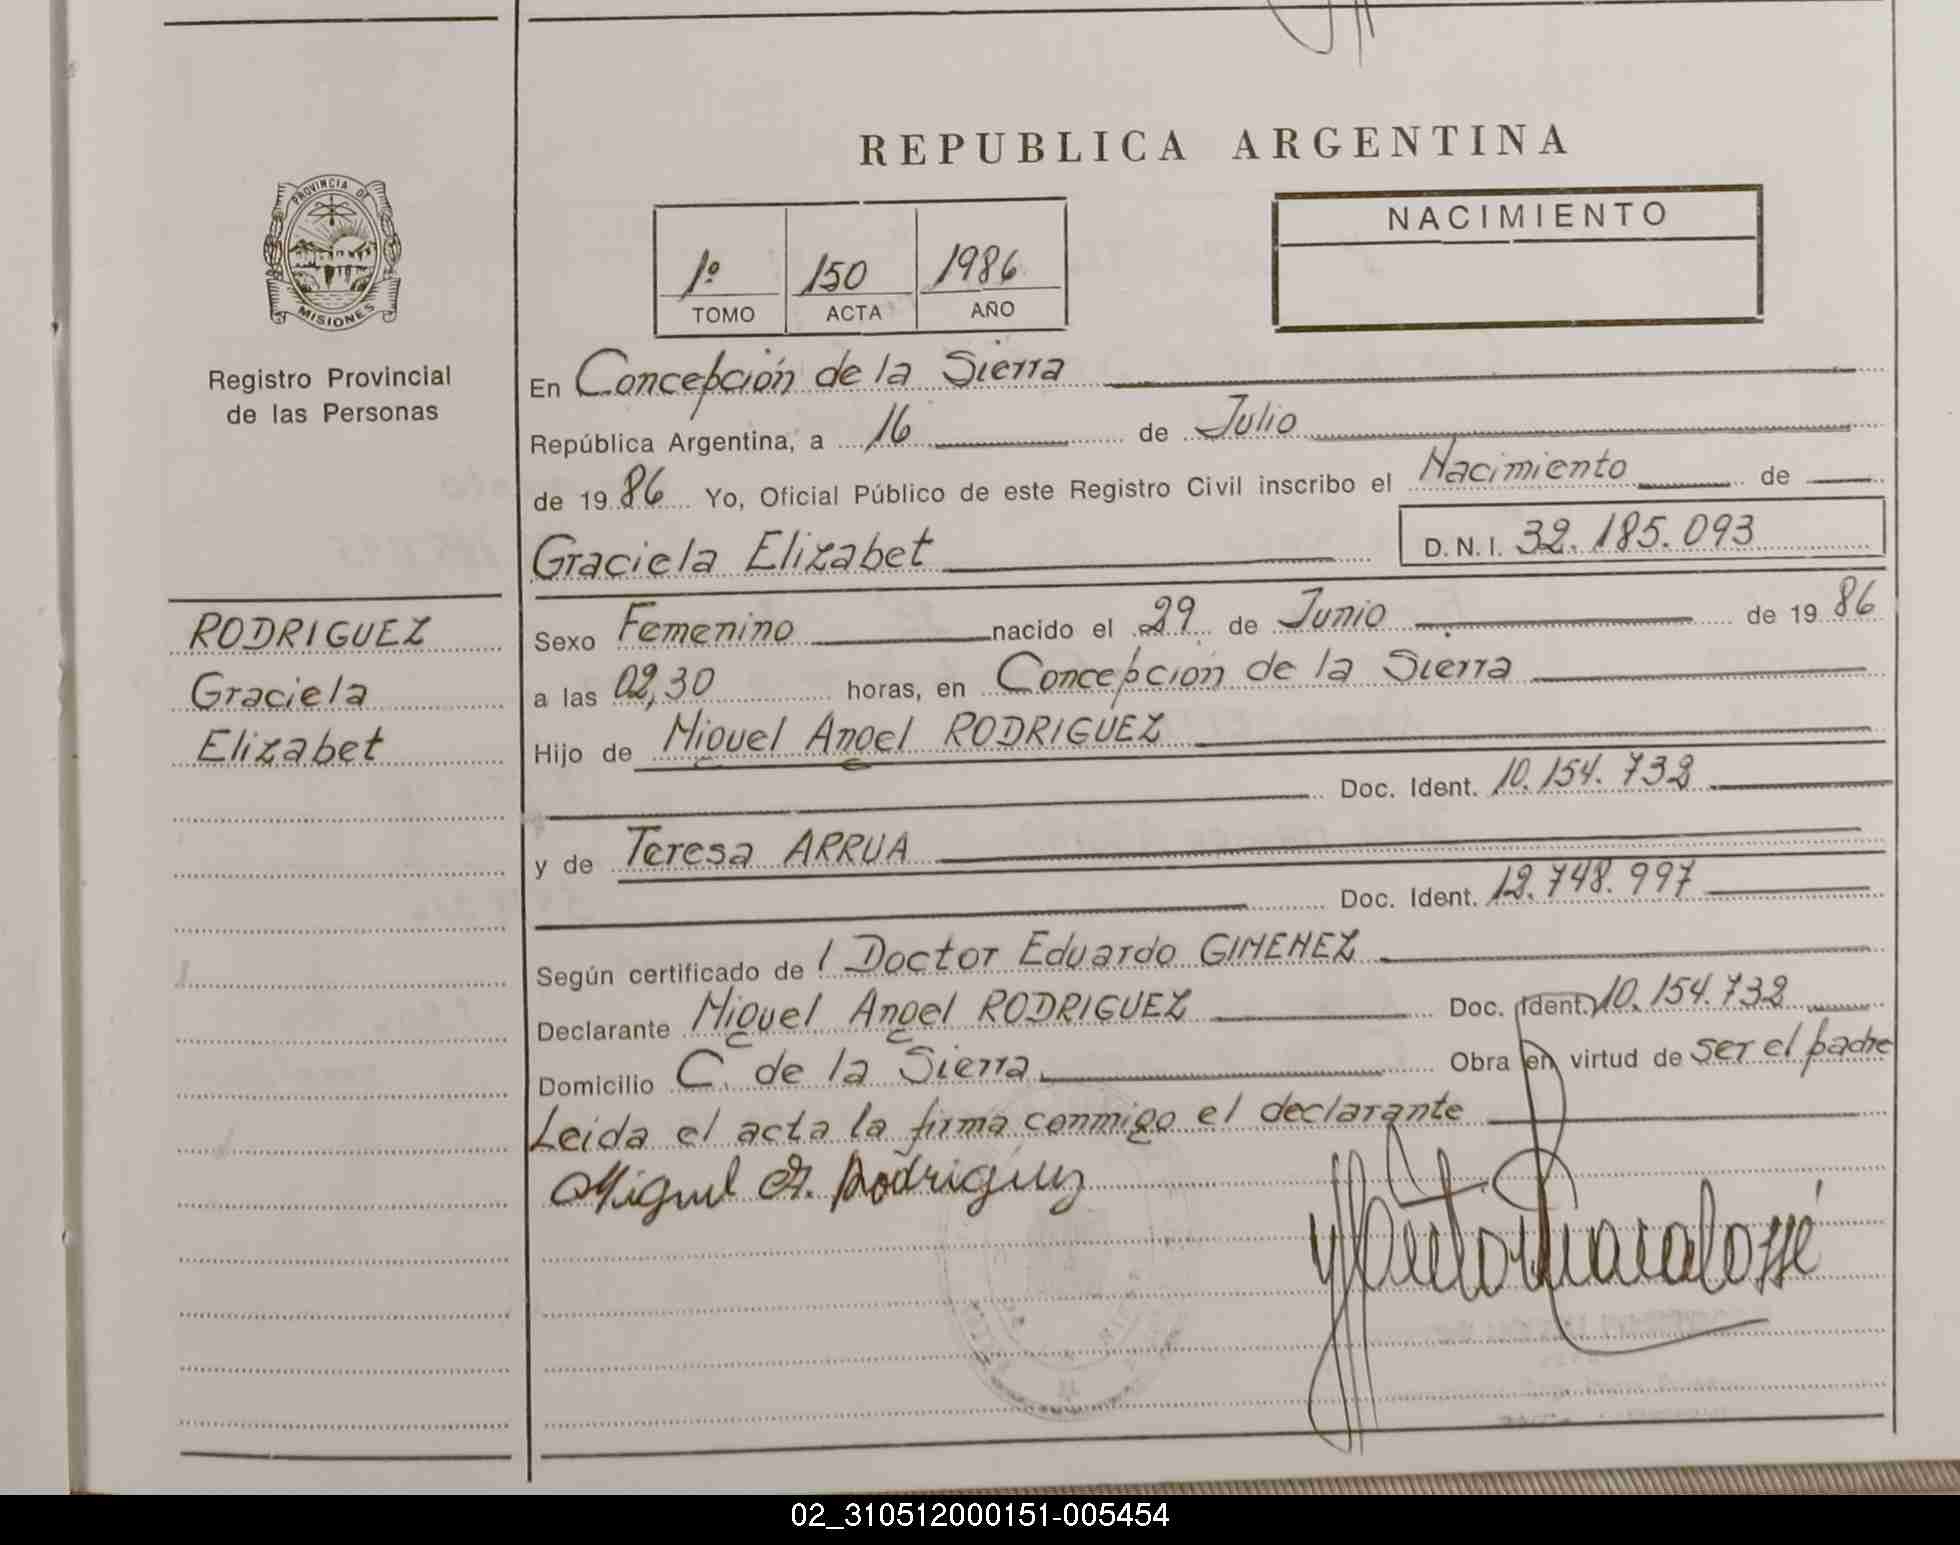 REPUBLICA ARGENTINA
PROVINCIA DE
MISIONES
Registro Provincial
de las Personas
1º 150 1986
TOMO ACTA AÑO
NACIMIENTO
En Concepción de la Sierra
República Argentina, a 16 de Julio
de 19 86 Yo, Oficial Público de este Registro Civil inscribo el Nacimiento de
Graciela Elizabet D.N.I. 32.185.093
RODRIGUEZ
Graciela
Elizabet
Sexo Femenino nacido el 29 de Junio de 19 86
a las 02,30 horas, en Concepción de la Sierra
Hijo de Miguel Angel RODRIGUEZ
Doc. Ident. 10.154.732
y de Teresa ARRUA
Doc. Ident. 12.748.997
Según certificado de l Doctor Eduardo GIMENEZ
Declarante Miguel Angel RODRIGUEZ Doc. Ident. 10.154.732
Domicilio C. de la Sierra Obra en virtud de ser el padre
Leida el acta la firma conmigo el declarante
Miguel A. Rodriguez
02_310512000151-005454